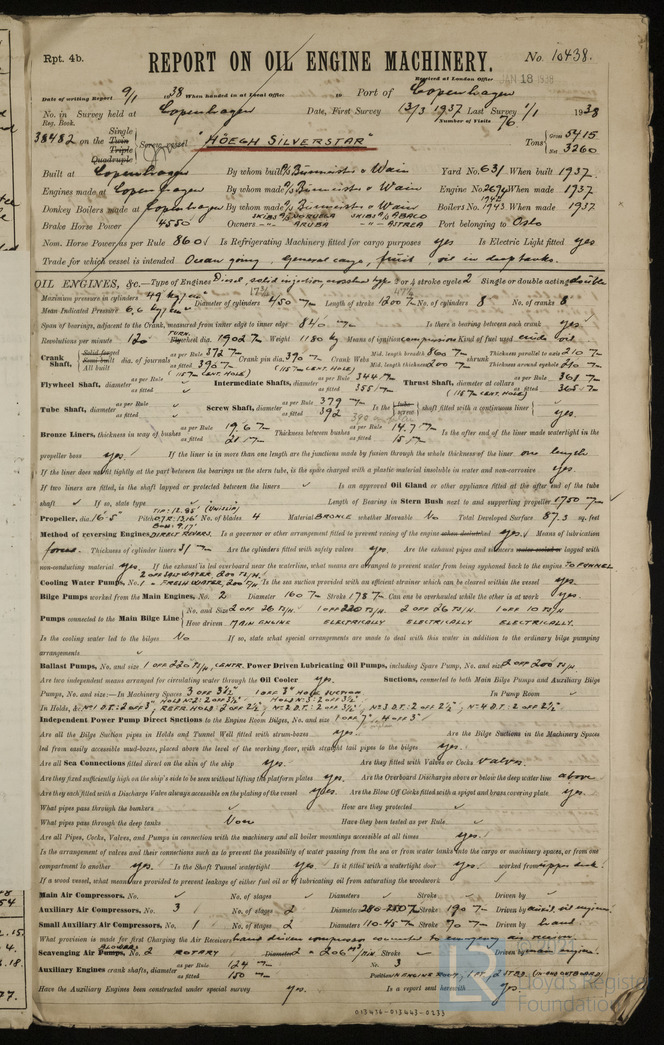 Rpt. 4b.
REPORT ON OIL ENGINE MACHINERY.
No. 10438.
Received at London Office JAN 18 1938
Date of writing Report 9/1 1938 When handed in at Local Office 19 Port of Copenhagen
No. in Reg. Book. Survey held at Copenhagen Date, First Survey 13/3 1937 Last Survey 1/1 1938
Number of Visits 76
38482 on the Single Twin Triple Quadruple Screw vessel "HÖEGH SILVERSTAR" Tons Gross 5415 Net 3260
Built at Copenhagen By whom built A/S Burmeister & Wain Yard No. 631 When built 1937
Engines made at Copenhagen By whom made A/S Burmeister & Wain Engine No. 2674 When made 1937
Donkey Boilers made at Copenhagen By whom made A/S Burmeister & Wain Boilers No. 1943 When made 1937
Brake Horse Power 4550 Owners SKIBS A/S NORUEGA SKIBS A/S ABACO -"- ARUBA -"- ASTREA Port belonging to Oslo
Nom. Horse Power as per Rule 860 Is Refrigerating Machinery fitted for cargo purposes yes Is Electric Light fitted yes
Trade for which vessel is intended Ocean going, general cargo, fruit, oil in deep tanks.
OIL ENGINES, &c.—Type of Engines Diesel, solid injection, crosshead type 2 or 4 stroke cycle 2 Single or double acting double
Maximum pressure in cylinders 49 kg/cm² Diameter of cylinders 450 m/m Length of stroke 1200 m/m No. of cylinders 8 No. of cranks 8
Mean Indicated Pressure 6,0 kg/cm²
Span of bearings, adjacent to the Crank, measured from inner edge to inner edge 840 m/m Is there a bearing between each crank yes
Revolutions per minute 120 TURN. Flywheel dia. 1902 m/m Weight 1180 kg Means of ignition compression Kind of fuel used crude oil
Crank Shaft, Solid forged Semi built All built dia. of journals as per Rule 372 m/m as fitted 390 m/m (115 m/m CENT. HOLE) Crank pin dia. 390 m/m (115 m/m CENT. HOLE) Crank Webs Mid. length breadth 860 m/m Mid. length thickness 200 m/m shrunk Thickness parallel to axis 210 m/m Thickness around eyehole 210 m/m
Flywheel Shaft, diameter as per Rule as fitted Intermediate Shafts, diameter as per Rule 344 m/m as fitted 355 m/m Thrust Shaft, diameter at collars as per Rule 361 m/m as fitted 365 m/m (115 m/m CENT. HOLE)
Tube Shaft, diameter as per Rule as fitted Screw Shaft, diameter as per Rule 379 m/m as fitted 392 Is the tube screw shaft fitted with a continuous liner yes.
Bronze Liners, thickness in way of bushes as per Rule 19.6 m/m as fitted 21 m/m Thickness between bushes as per Rule 14.7 m/m as fitted 15 m/m Is the after end of the liner made watertight in the
propeller boss yes. If the liner is in more than one length are the junctions made by fusion through the whole thickness of the liner one length
If the liner does not fit tightly at the part between the bearings in the stern tube, is the space charged with a plastic material insoluble in water and non-corrosive yes.
If two liners are fitted, is the shaft lapped or protected between the liners Is an approved Oil Gland or other appliance fitted at the after end of the tube
shaft If so, state type Length of Bearing in Stern Bush next to and supporting propeller 1750 m/m
Propeller, dia. 16'-5" Pitch No. of blades 4 Material BRONZE whether Moveable No Total Developed Surface 87.3 sq. feet
Method of reversing Engines DIRECT REVERS. Is a governor or other arrangement fitted to prevent racing of the engine when declutched yes. Means of lubrication
forced. Thickness of cylinder liners 31 m/m Are the cylinders fitted with safety valves yes. Are the exhaust pipes and silencers water cooled or lagged with
non-conducting material yes. If the exhaust is led overboard near the waterline, what means are arranged to prevent water from being syphoned back to the engine TO FUNNEL
Cooling Water Pumps, No. 2 OFF SALT WATER 200 TS/H. 1 - FRESH WATER 200 TS/H. Is the sea suction provided with an efficient strainer which can be cleared within the vessel yes.
Bilge Pumps worked from the Main Engines, No. 2 Diameter 160 m/m Stroke 178 m/m Can one be overhauled while the other is at work yes.
Pumps connected to the Main Bilge Line No. and Size 2 OFF 26 TS/H 1 OFF 220 TS/H 2 OFF 26 TS/H 1 OFF 10 TS/H
How driven MAIN ENGINE ELECTRICALLY ELECTRICALLY ELECTRICALLY.
Is the cooling water led to the bilges No If so, state what special arrangements are made to deal with this water in addition to the ordinary bilge pumping
arrangements
Ballast Pumps, No. and size 1 OFF 220 TS/H, CENTR. Power Driven Lubricating Oil Pumps, including Spare Pump, No. and size 2 OFF 200 TS/H.
Are two independent means arranged for circulating water through the Oil Cooler yes. Suctions, connected to both Main Bilge Pumps and Auxiliary Bilge
Pumps, No. and size:—In Machinery Spaces 3 OFF 3½" 1 OFF 3" HOLE SUCTION In Pump Room
In Holds, &c. No 1 D.T: 2 OFF 3", REFR. HOLD: 2 OFF 2½"; No 2 D.T: 2 OFF 3½"; No 3 D.T: 2 OFF 2½"; No 4 D.T: 2 OFF 2½"
Independent Power Pump Direct Suctions to the Engine Room Bilges, No. and size 1 OFF 7", 4 OFF 3"
Are all the Bilge Suction pipes in Holds and Tunnel Well fitted with strum-boxes yes. Are the Bilge Suctions in the Machinery Spaces
led from easily accessible mud-boxes, placed above the level of the working floor, with straight tail pipes to the bilges yes.
Are all Sea Connections fitted direct on the skin of the ship yes. Are they fitted with Valves or Cocks valves.
Are they fixed sufficiently high on the ship's side to be seen without lifting the platform plates yes. Are the Overboard Discharges above or below the deep water line above
Are they each fitted with a Discharge Valve always accessible on the plating of the vessel yes. Are the Blow Off Cocks fitted with a spigot and brass covering plate yes.
What pipes pass through the bunkers How are they protected
What pipes pass through the deep tanks None Have they been tested as per Rule
Are all Pipes, Cocks, Valves, and Pumps in connection with the machinery and all boiler mountings accessible at all times yes.
Is the arrangement of valves and their connections such as to prevent the possibility of water passing from the sea or from water tanks into the cargo or machinery spaces, or from one
compartment to another yes. Is the Shaft Tunnel watertight yes. Is it fitted with a watertight door yes worked from upper deck.
If a wood vessel, what means are provided to prevent leakage of either fuel oil or of lubricating oil from saturating the woodwork
Main Air Compressors, No. No. of stages Diameters Stroke Driven by
Auxiliary Air Compressors, No. 3 No. of stages 2 Diameters 280-250 m/m Stroke 190 m/m Driven by auxil. oil engines.
Small Auxiliary Air Compressors, No. 1 No. of stages 2 Diameters 110-45 m/m Stroke 70 m/m Driven by hand
What provision is made for first Charging the Air Receivers hand driven compressor connected to emergency air receiver.
Scavenging Air Pumps, BLOWERS No. 2 ROTARY Diameter 2 × 206 m³/MIN. Stroke Driven by main engine.
Auxiliary Engines crank shafts, diameter as per Rule 124 m/m as fitted 150 m/m No. 3 Position IN ENGINE ROOM, 1 PT, 2 STBD.
Have the Auxiliary Engines been constructed under special survey yes. Is a report sent herewith yes.
013436-013443-0233
LR
Lloyd's Register
Foundation